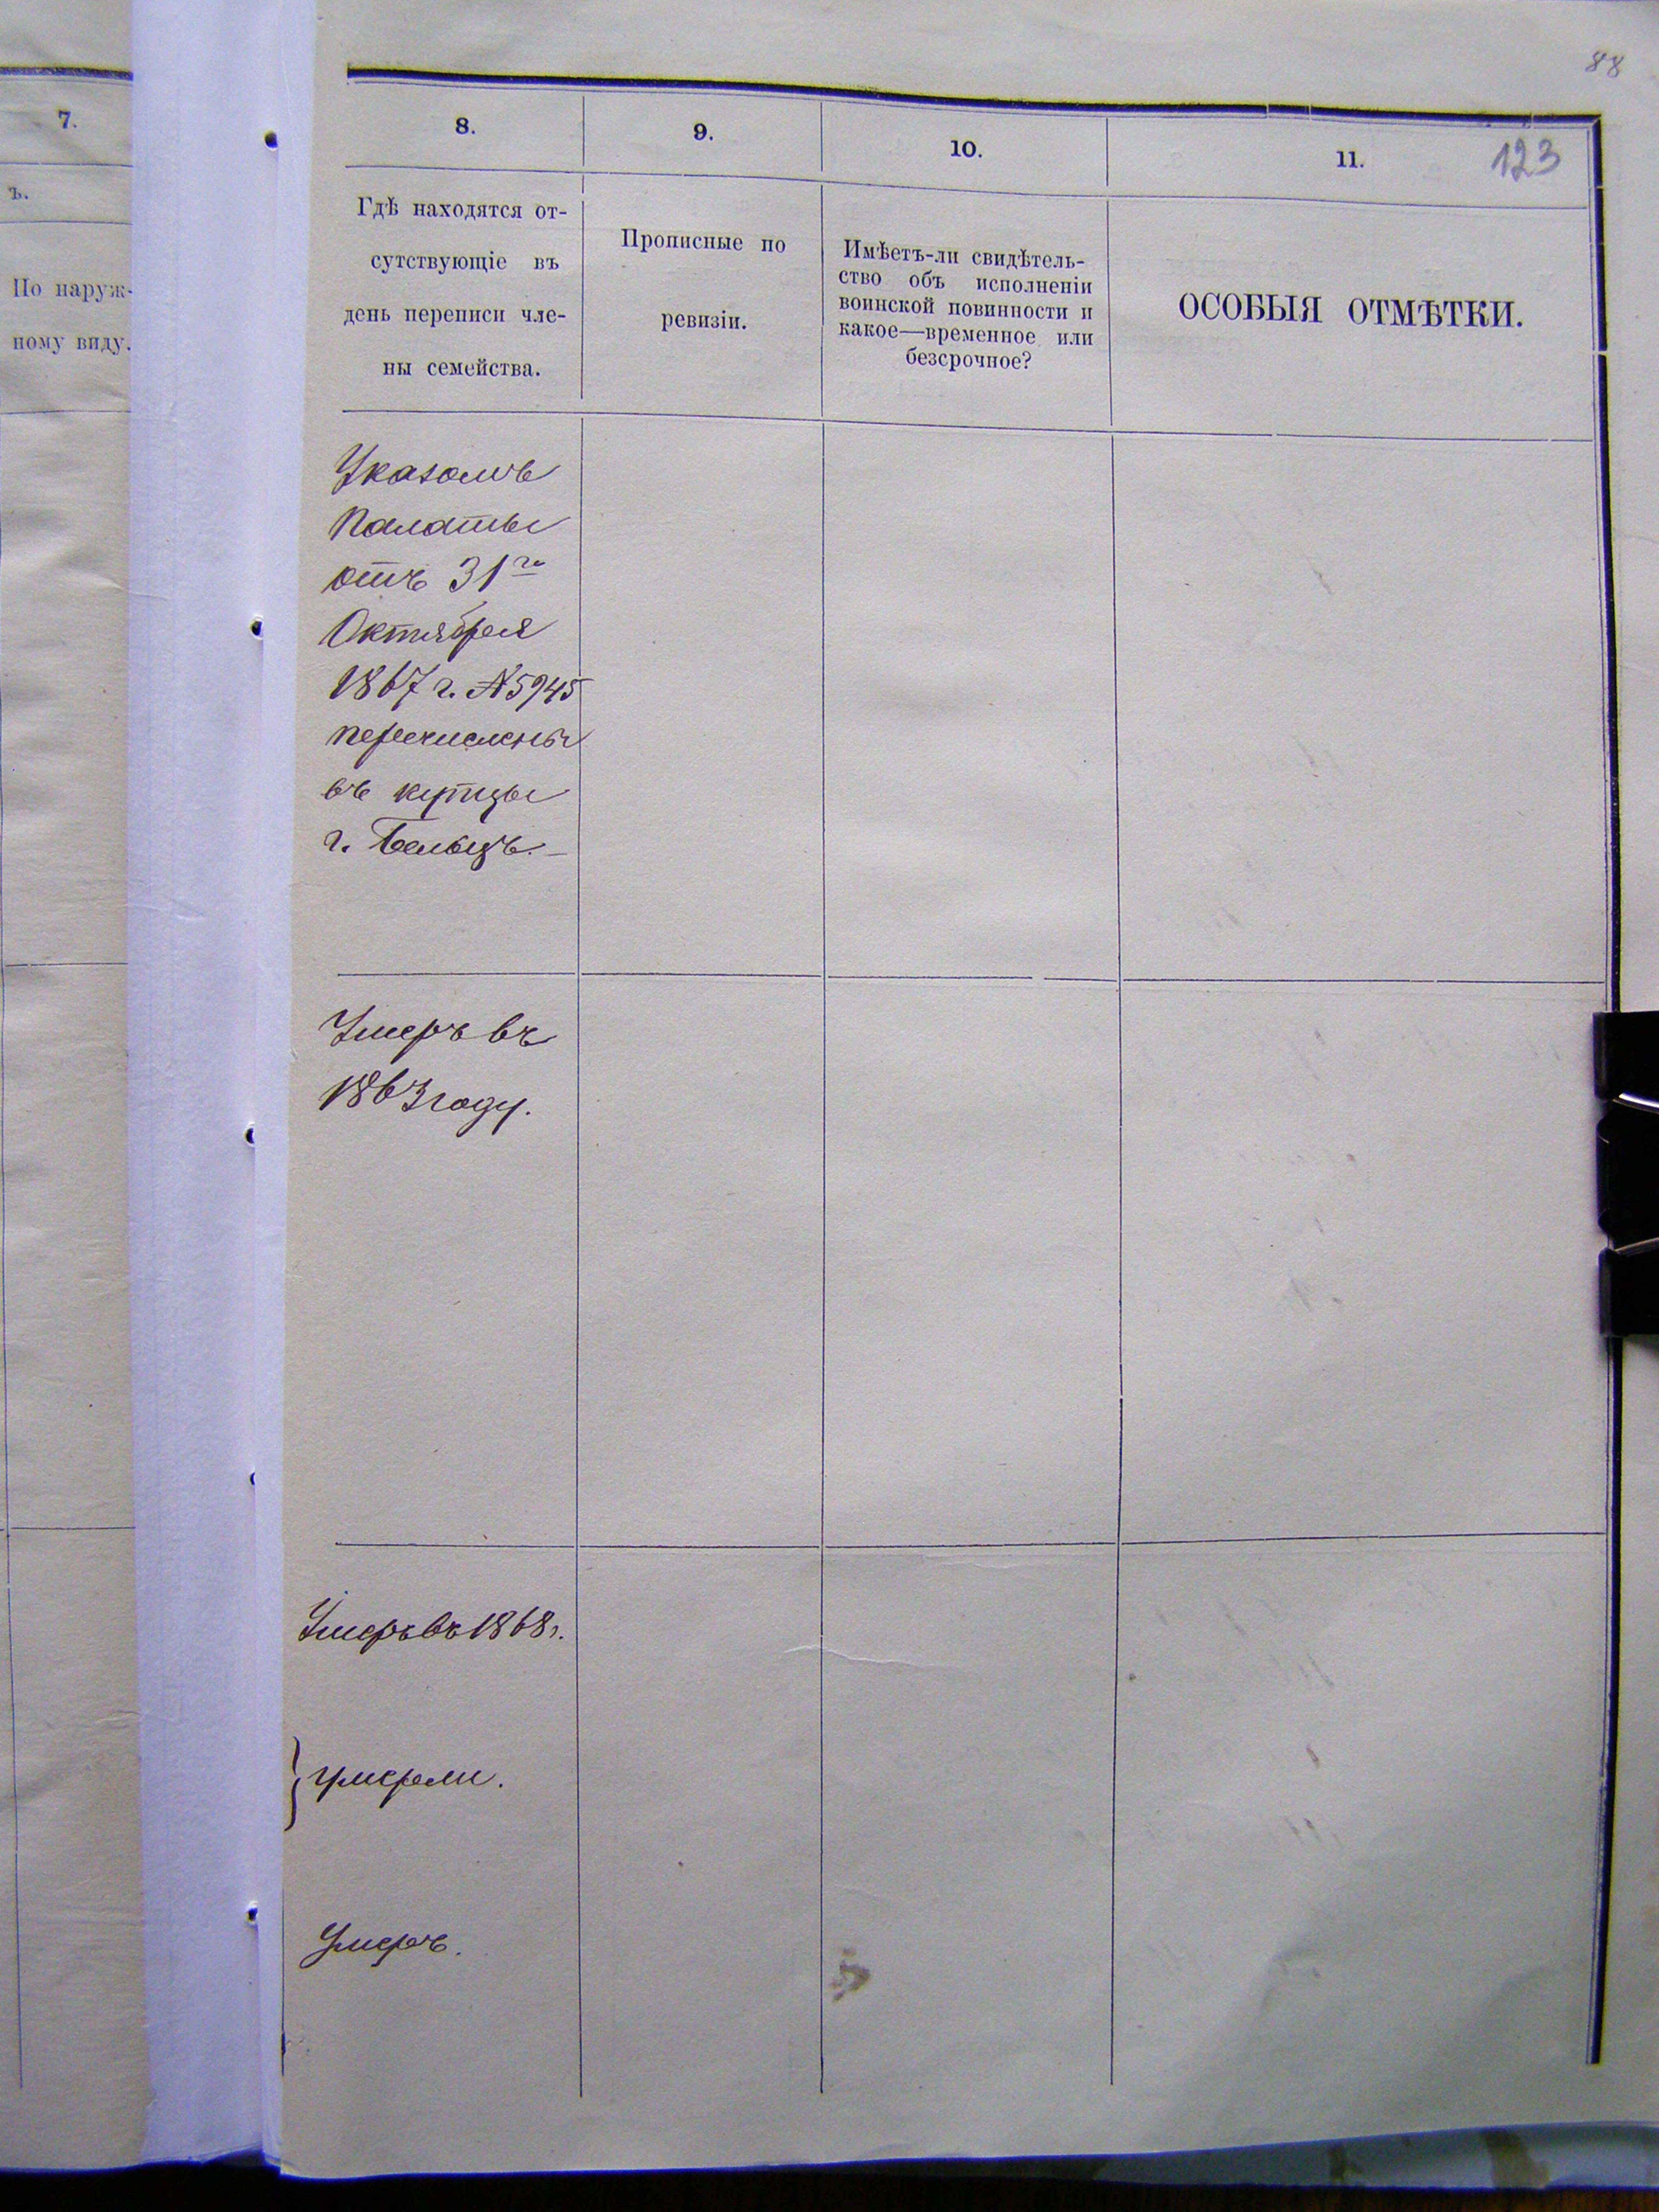 88
7.
ъ.
По наруж-
ному виду.
8.
9.
10.
11.
123
Гдѣ находятся от-
сутствующіе въ
день переписи чле-
ны семейства.
Прописные по
ревизіи.
Имѣетъ-ли свидѣтель-
ство объ исполненіи
воинской повинности и
какое—временное или
безсрочное?
ОСОБЫЯ ОТМѢТКИ.
Указомъ
Палаты
отъ 31го
Октября
1867 г. № 5945
перечислены
въ купцы
г. Бельцъ.—
Умеръ въ
1863 году.
Умеръ въ 1868 г.
умерли.
Умеръ.